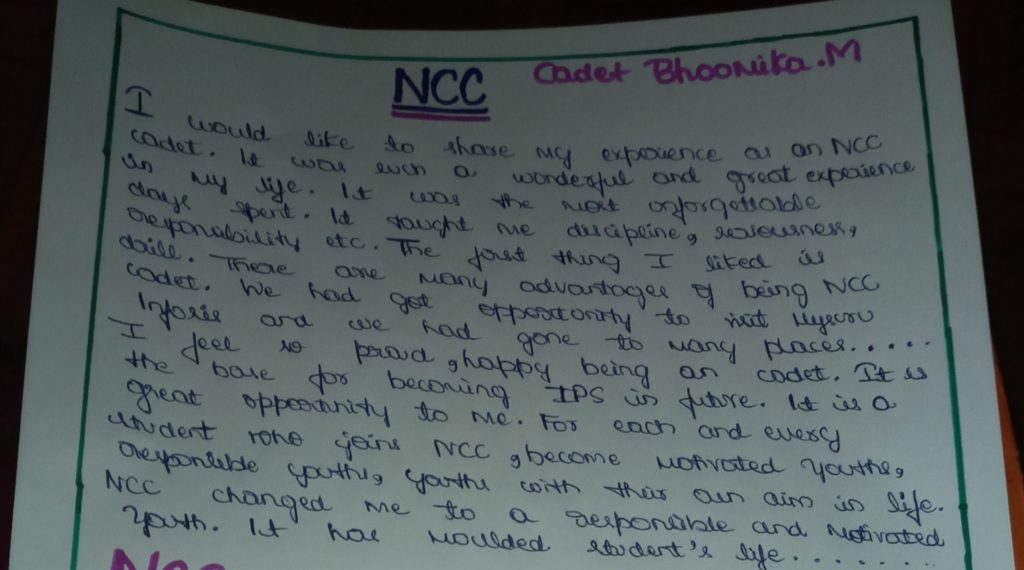 NCC Cadet Bhoomika.M
I would like to share my experience as an NCC
cadet. It was such a wonderful and great experience
in my life. It was the most unforgettable
days spent. It taught me discipline, seriousness,
responsibility etc. The first thing I liked is
drill. There are many advantages of being NCC
cadet. We had got opportunity to visit Mysuru
Infosis and we had gone to many places.....
I feel so proud, happy being an cadet. It is
the base for becoming IPS in future. It is a
great opportunity to me. For each and every
student who joins NCC, become motivated youths,
responsible youths, youths with their own aim in life.
NCC changed me to a responsible and motivated
youth. It has moulded student's life........
NCC